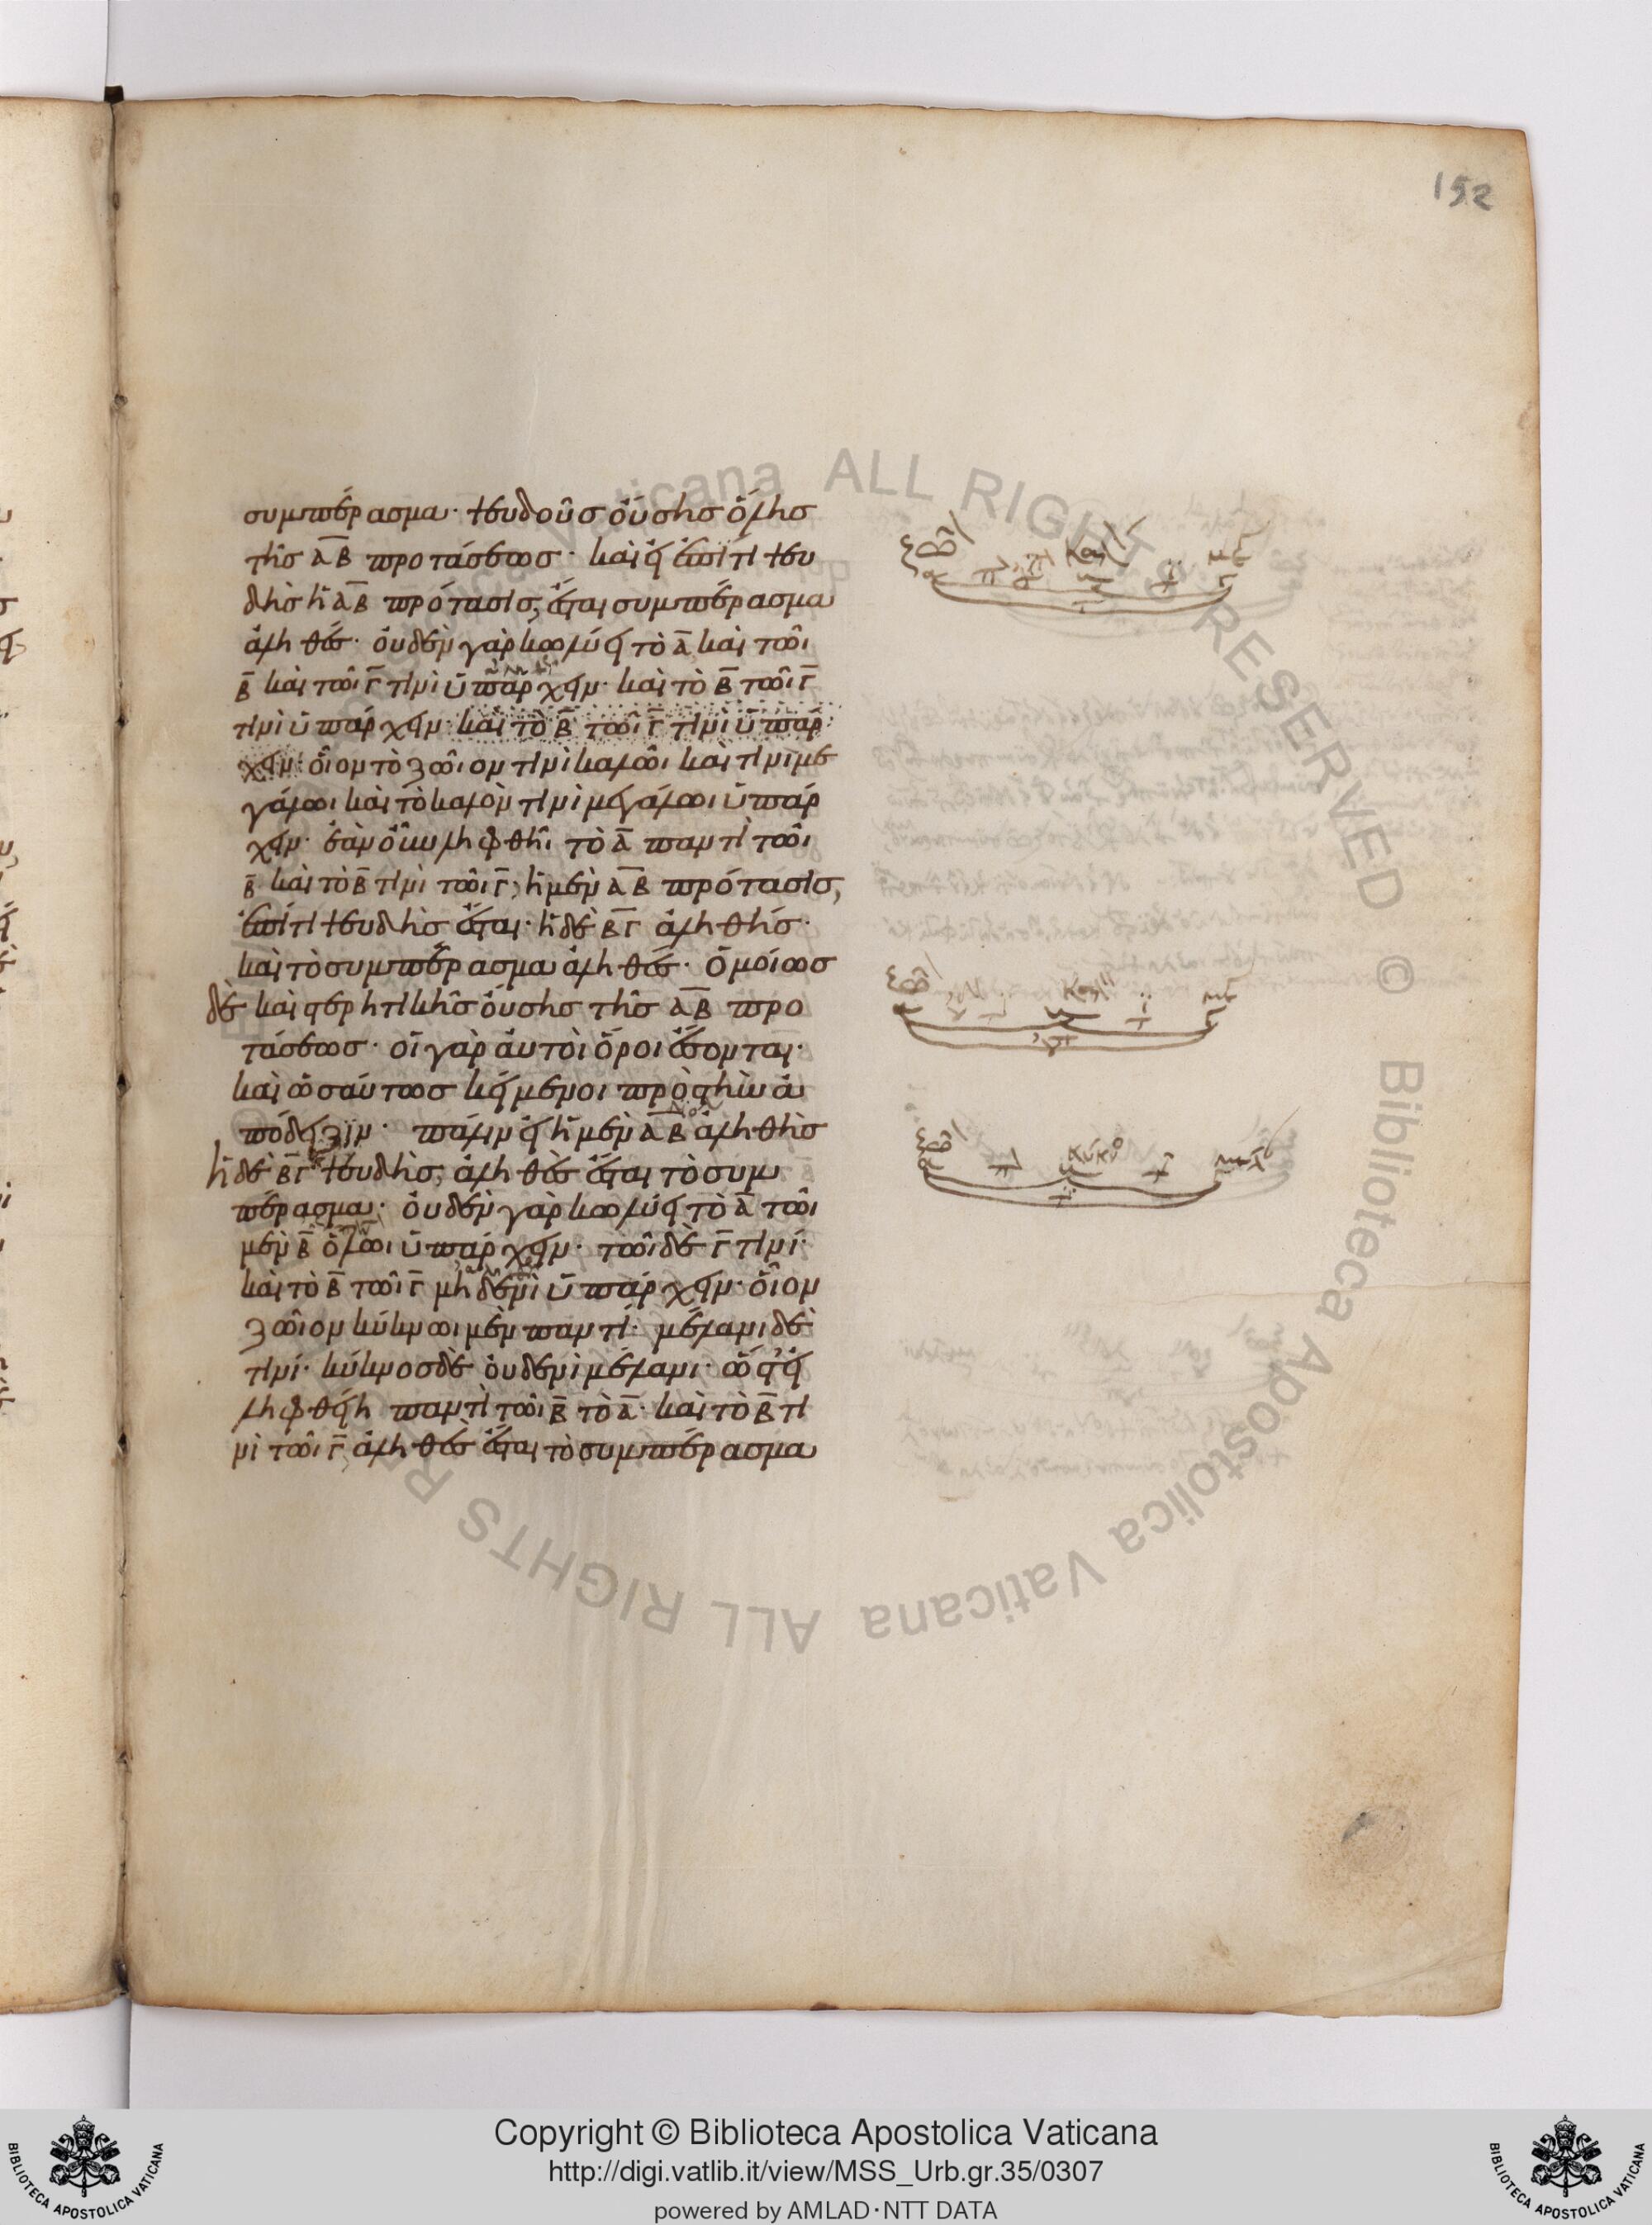 152
συμπέρασμα· ψευδοῦς οὔσης ὅλης
τῆς ΑΒ προτάσεως· καὶ εἰ ἐπί τι ψευ
δὴς ἡ ΑΒ πρότασις, ἔσται συμπέρασμα
ἀληθές· οὐδὲν γὰρ κωλύει τὸ Α καὶ τῶι
Β καὶ τῶι Γ τινὶ ὑπάρχειν· καὶ τὸ Β τῶι Γ
τινὶ ὑπάρχειν· καὶ τὸ Β τῶι Γ τινὶ ὑπάρ
χειν· οἷον τὸ ζῶιον τινὶ καλῶι καὶ τινὶ με
γάλωι καὶ τὸ καλὸν τινὶ μεγάλωι ὑπάρ
χειν· ἐὰν οὖν ληφθῆι τὸ Α παντὶ τῶι
Β καὶ τὸ Β τινὶ τῶι Γ, ἡ μὲν ΑΒ πρότασις,
ἐπί τι ψευδὴς ἔσται· ἡ δὲ ΒΓ ἀληθής·
καὶ τὸ συμπέρασμα ἀληθές· ὁμοίως
δὲ καὶ στερητικῆς οὔσης τῆς ΑΒ προ
τάσεως· οἱ γὰρ αὐτοὶ ὅροι ἔσονται·
καὶ ὡσαύτως κείμενοι πρὸς τὴν ἀ
πόδειξιν· πάλιν εἰ ἡ μὲν ΑΒ ἀληθὴς
ἡ δὲ ΒΓ ψευδὴς, ἀληθὲς ἔσται τὸ συμ
πέρασμα· οὐδὲν γὰρ κωλύει τὸ Α τῶι
μὲν Β ὅλωι ὑπάρχειν· τῶι δὲ Γ τινί·
καὶ τὸ Β τῶι Γ μηδενὶ ὑπάρχειν· οἷον
ζῶιον κύκνωι μὲν παντί· μέλανι δὲ
τινί· κύκνος δὲ οὐδενὶ μέλανι· ὥστ' εἰ
ληφθείη παντὶ τῶι Β τὸ Α· καὶ τὸ Β τι
νὶ τῶι Γ, ἀληθὲς ἔσται τὸ συμπέρασμα
Copyright © Biblioteca Apostolica Vaticana
http://digi.vatlib.it/view/MSS_Urb.gr.35/0307
powered by AMLAD·NTT DATA
BIBLIOTECA APOSTOLICA VATICANA
BIBLIOTECA APOSTOLICA VATICANA